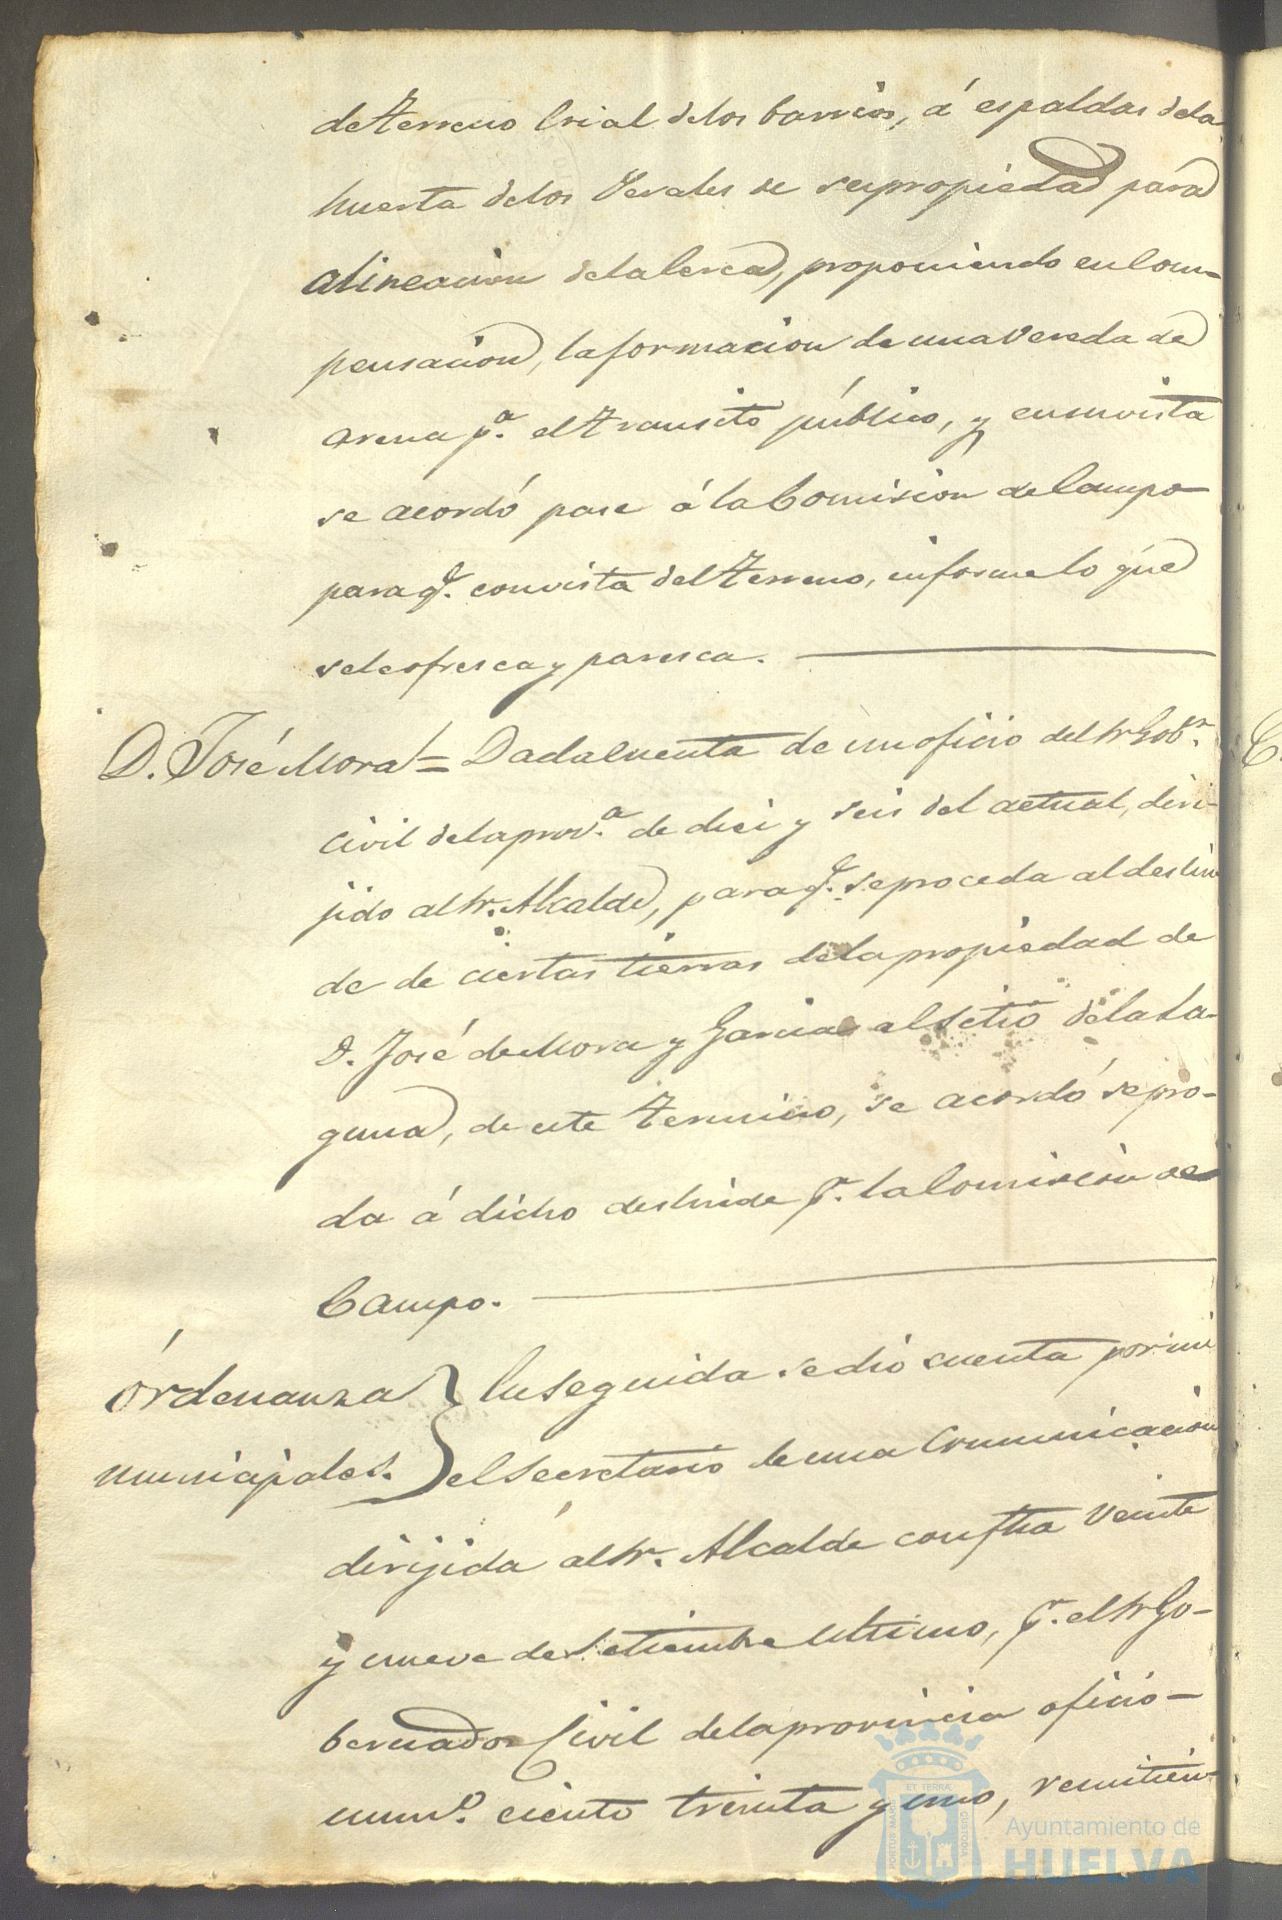 de terreno Erial de los barrios, á espaldas de la
huerta de los Perales de su propiedad para
alineacion de la cerca, proponiendo en com-
pensacion, la formacion de una vereda de
arena p.ª el transito público, y en su vista
se acordó pase á la Comision de Campo
para q.e con vista del terreno, informe lo que
se le ofresca y paresca.
D. José Mora = Dada cuenta de un oficio del Sr Gob.r
civil de la prov.ª de diez y seis del actual, diri-
jido al Sr. Alcalde, para q.e se proceda al deslin
de de ciertas tierras de la propiedad de
D. José de Mora y Garcia al sitio de la La-
guna, de este termino, se acordó se pro-
da á dicho deslinde p.r la Comision de
Campo.
Ordenanza } En seguida se dió cuenta por mi
municipales. } el Secretario de una Comunicacion
dirijida al Sr. Alcalde con fha veinte
y nueve de Setiembre ultimo, p.r el Sr Go-
bernador Civil de la provincia oficio
num.o ciento treinta y uno, remitien-
Ayuntamiento de
HUELVA